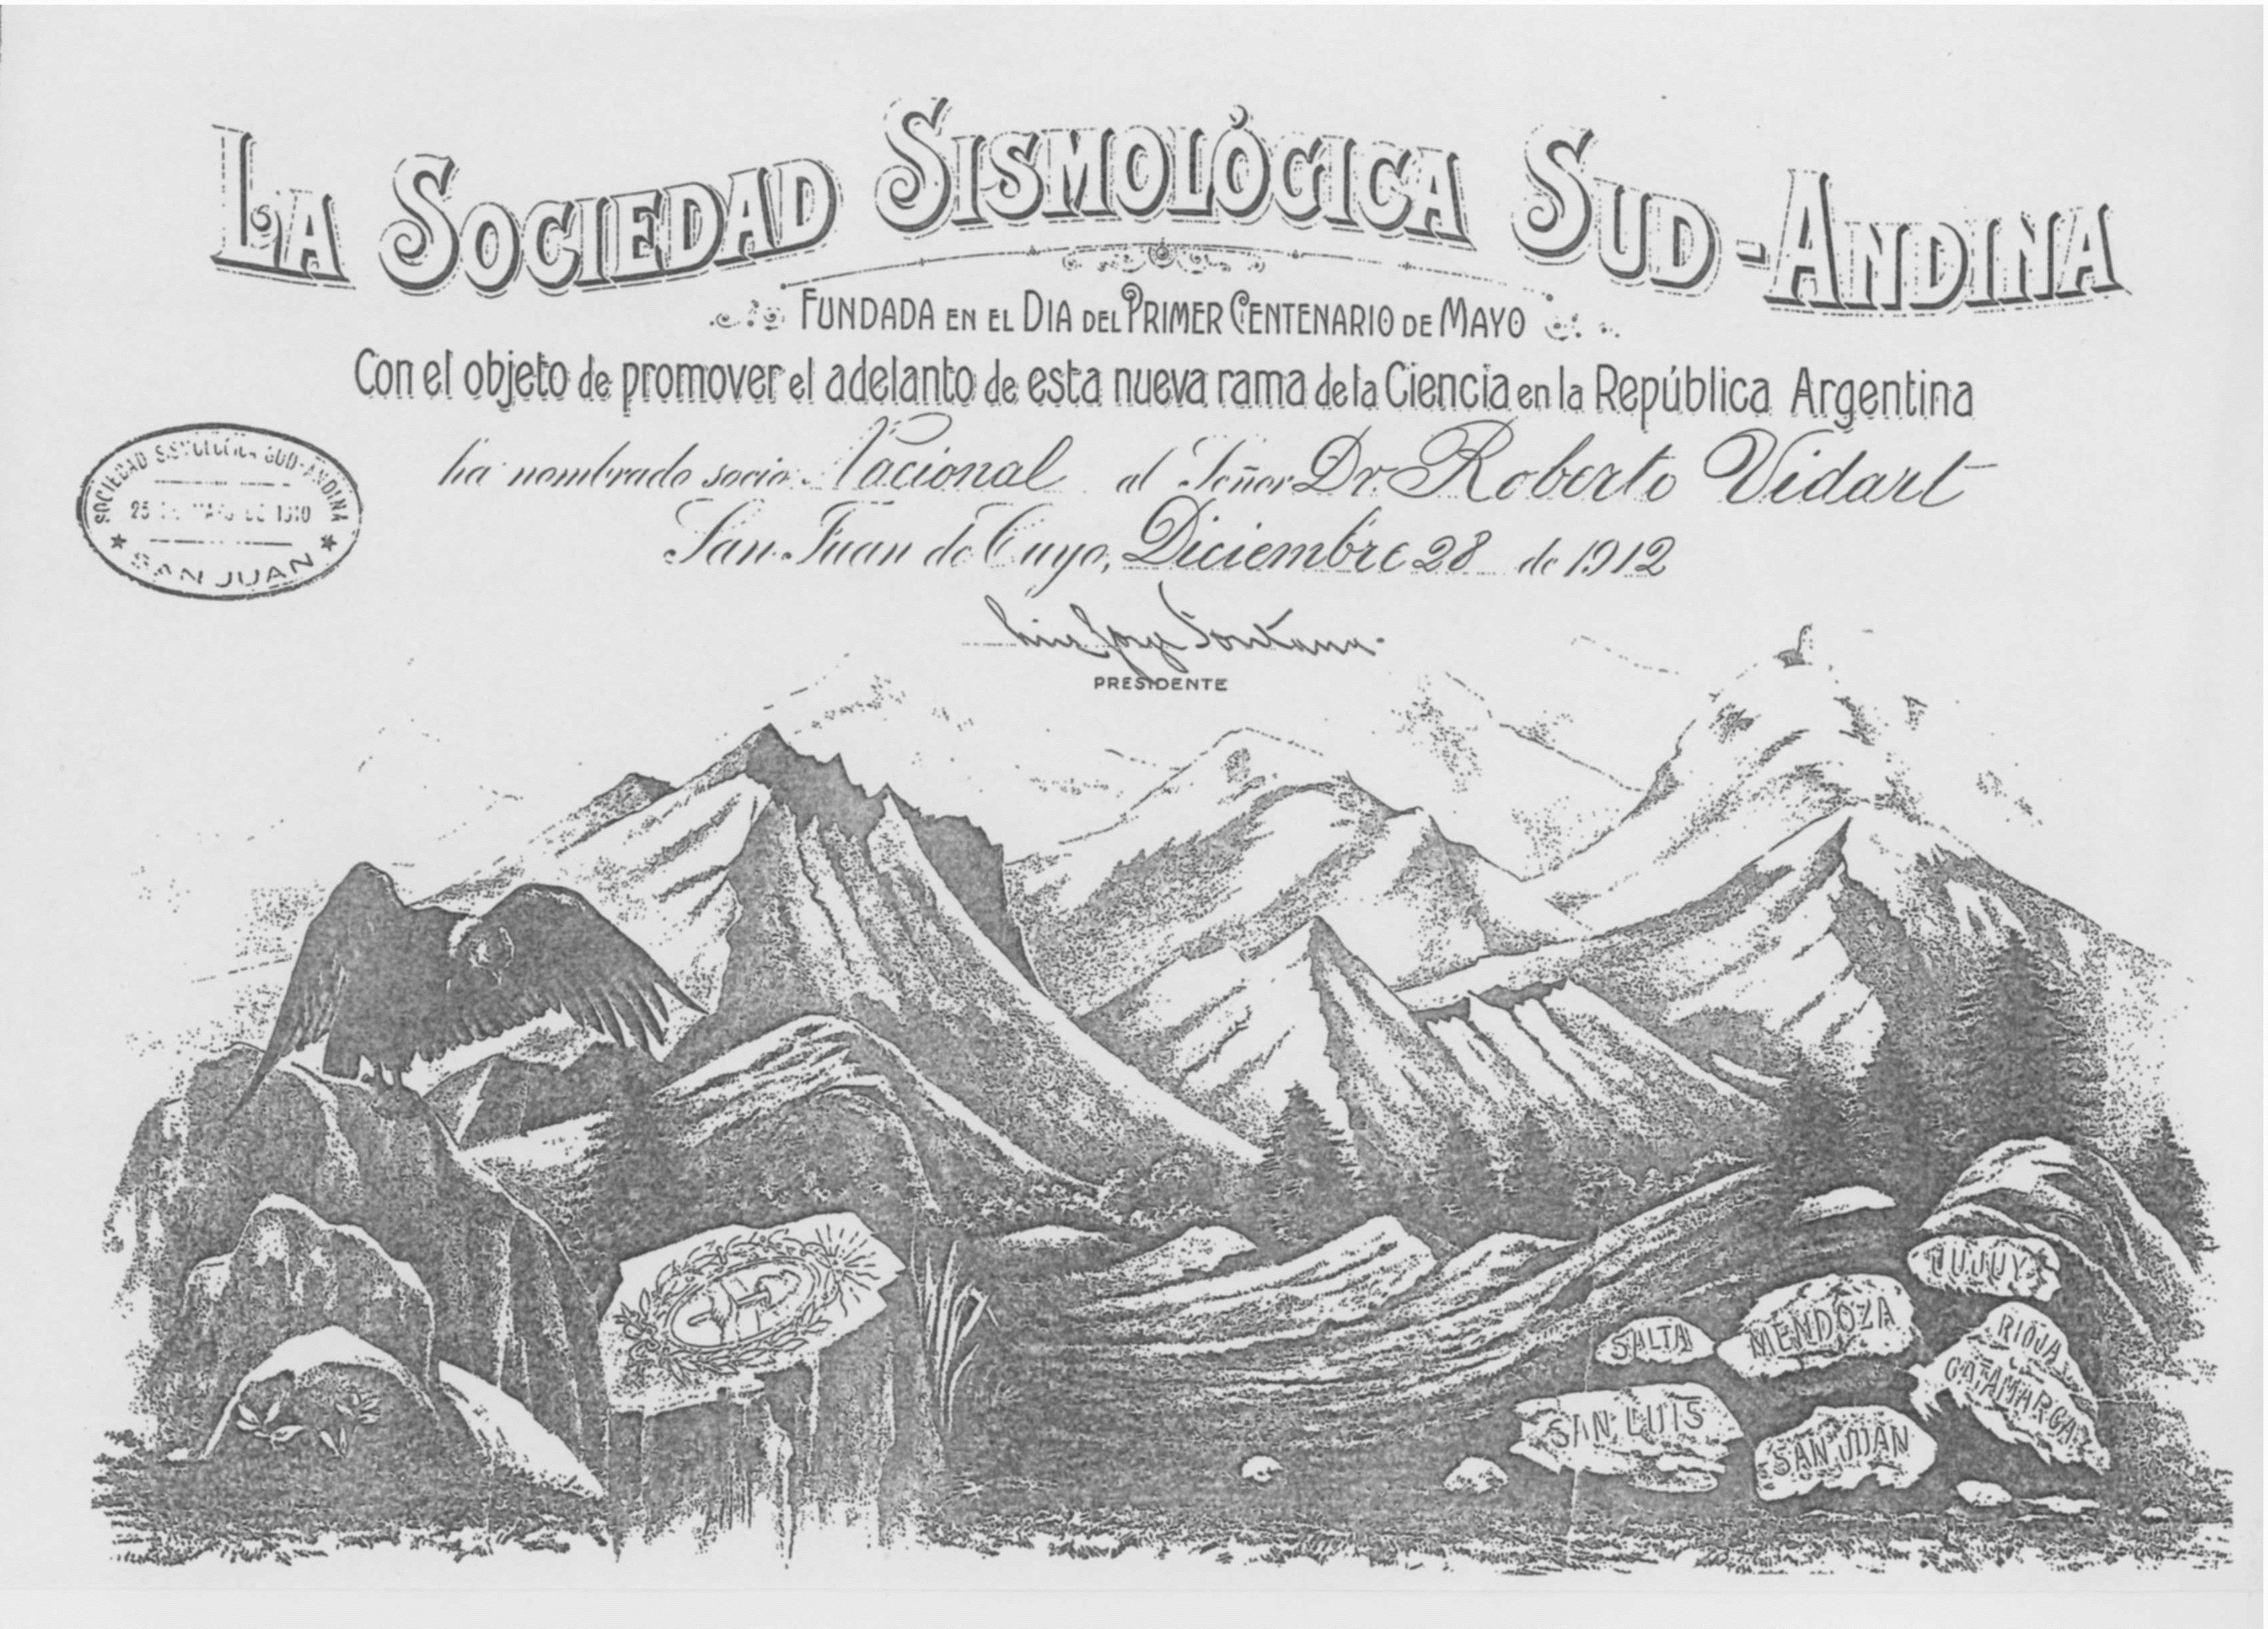 LA SOCIEDAD SISMOLÓGICA SUD-ANDINA
FUNDADA EN EL DIA DEL PRIMER CENTENARIO DE MAYO
Con el objeto de promover el adelanto de esta nueva rama de la Ciencia en la República Argentina
ha nombrado socio Nacional al Señor Dr. Roberto Vidart
San Juan de Cuyo, Diciembre 28 de 1912
SOCIEDAD SISMOLÓGICA SUD-ANDINA
25 DE MAYO DE 1910
SAN JUAN
Luis Jorge Fontana
PRESIDENTE
JUJUY
SALTA
MENDOZA
RIOJA
CATAMARCA
SAN LUIS
SAN JUAN